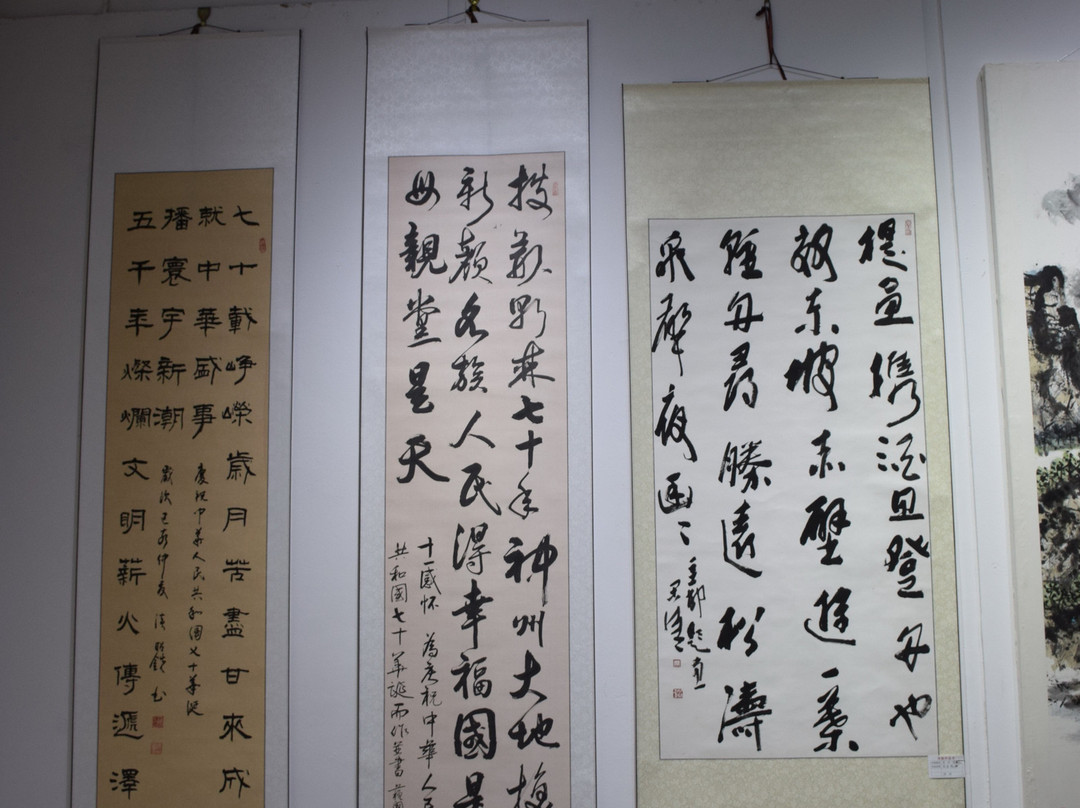 七十載崢嶸歲月苦盡甘來成
就中華盛事
播寰宇新潮
五千年燦爛文明薪火傳遞澤
慶祝中華人民共和國七十華誕
歲次己亥仲夏
披荊斬棘七十年神州大地換
新顏各族人民得幸福國是
母親黨是天
十一感懷 為慶祝中華人民
共和國七十華誕而作並書
提魚攜酒且登舟也
效東坡赤壁遊一葉
輕舟尋勝遠松濤
飛聲夜幽〻
題畫